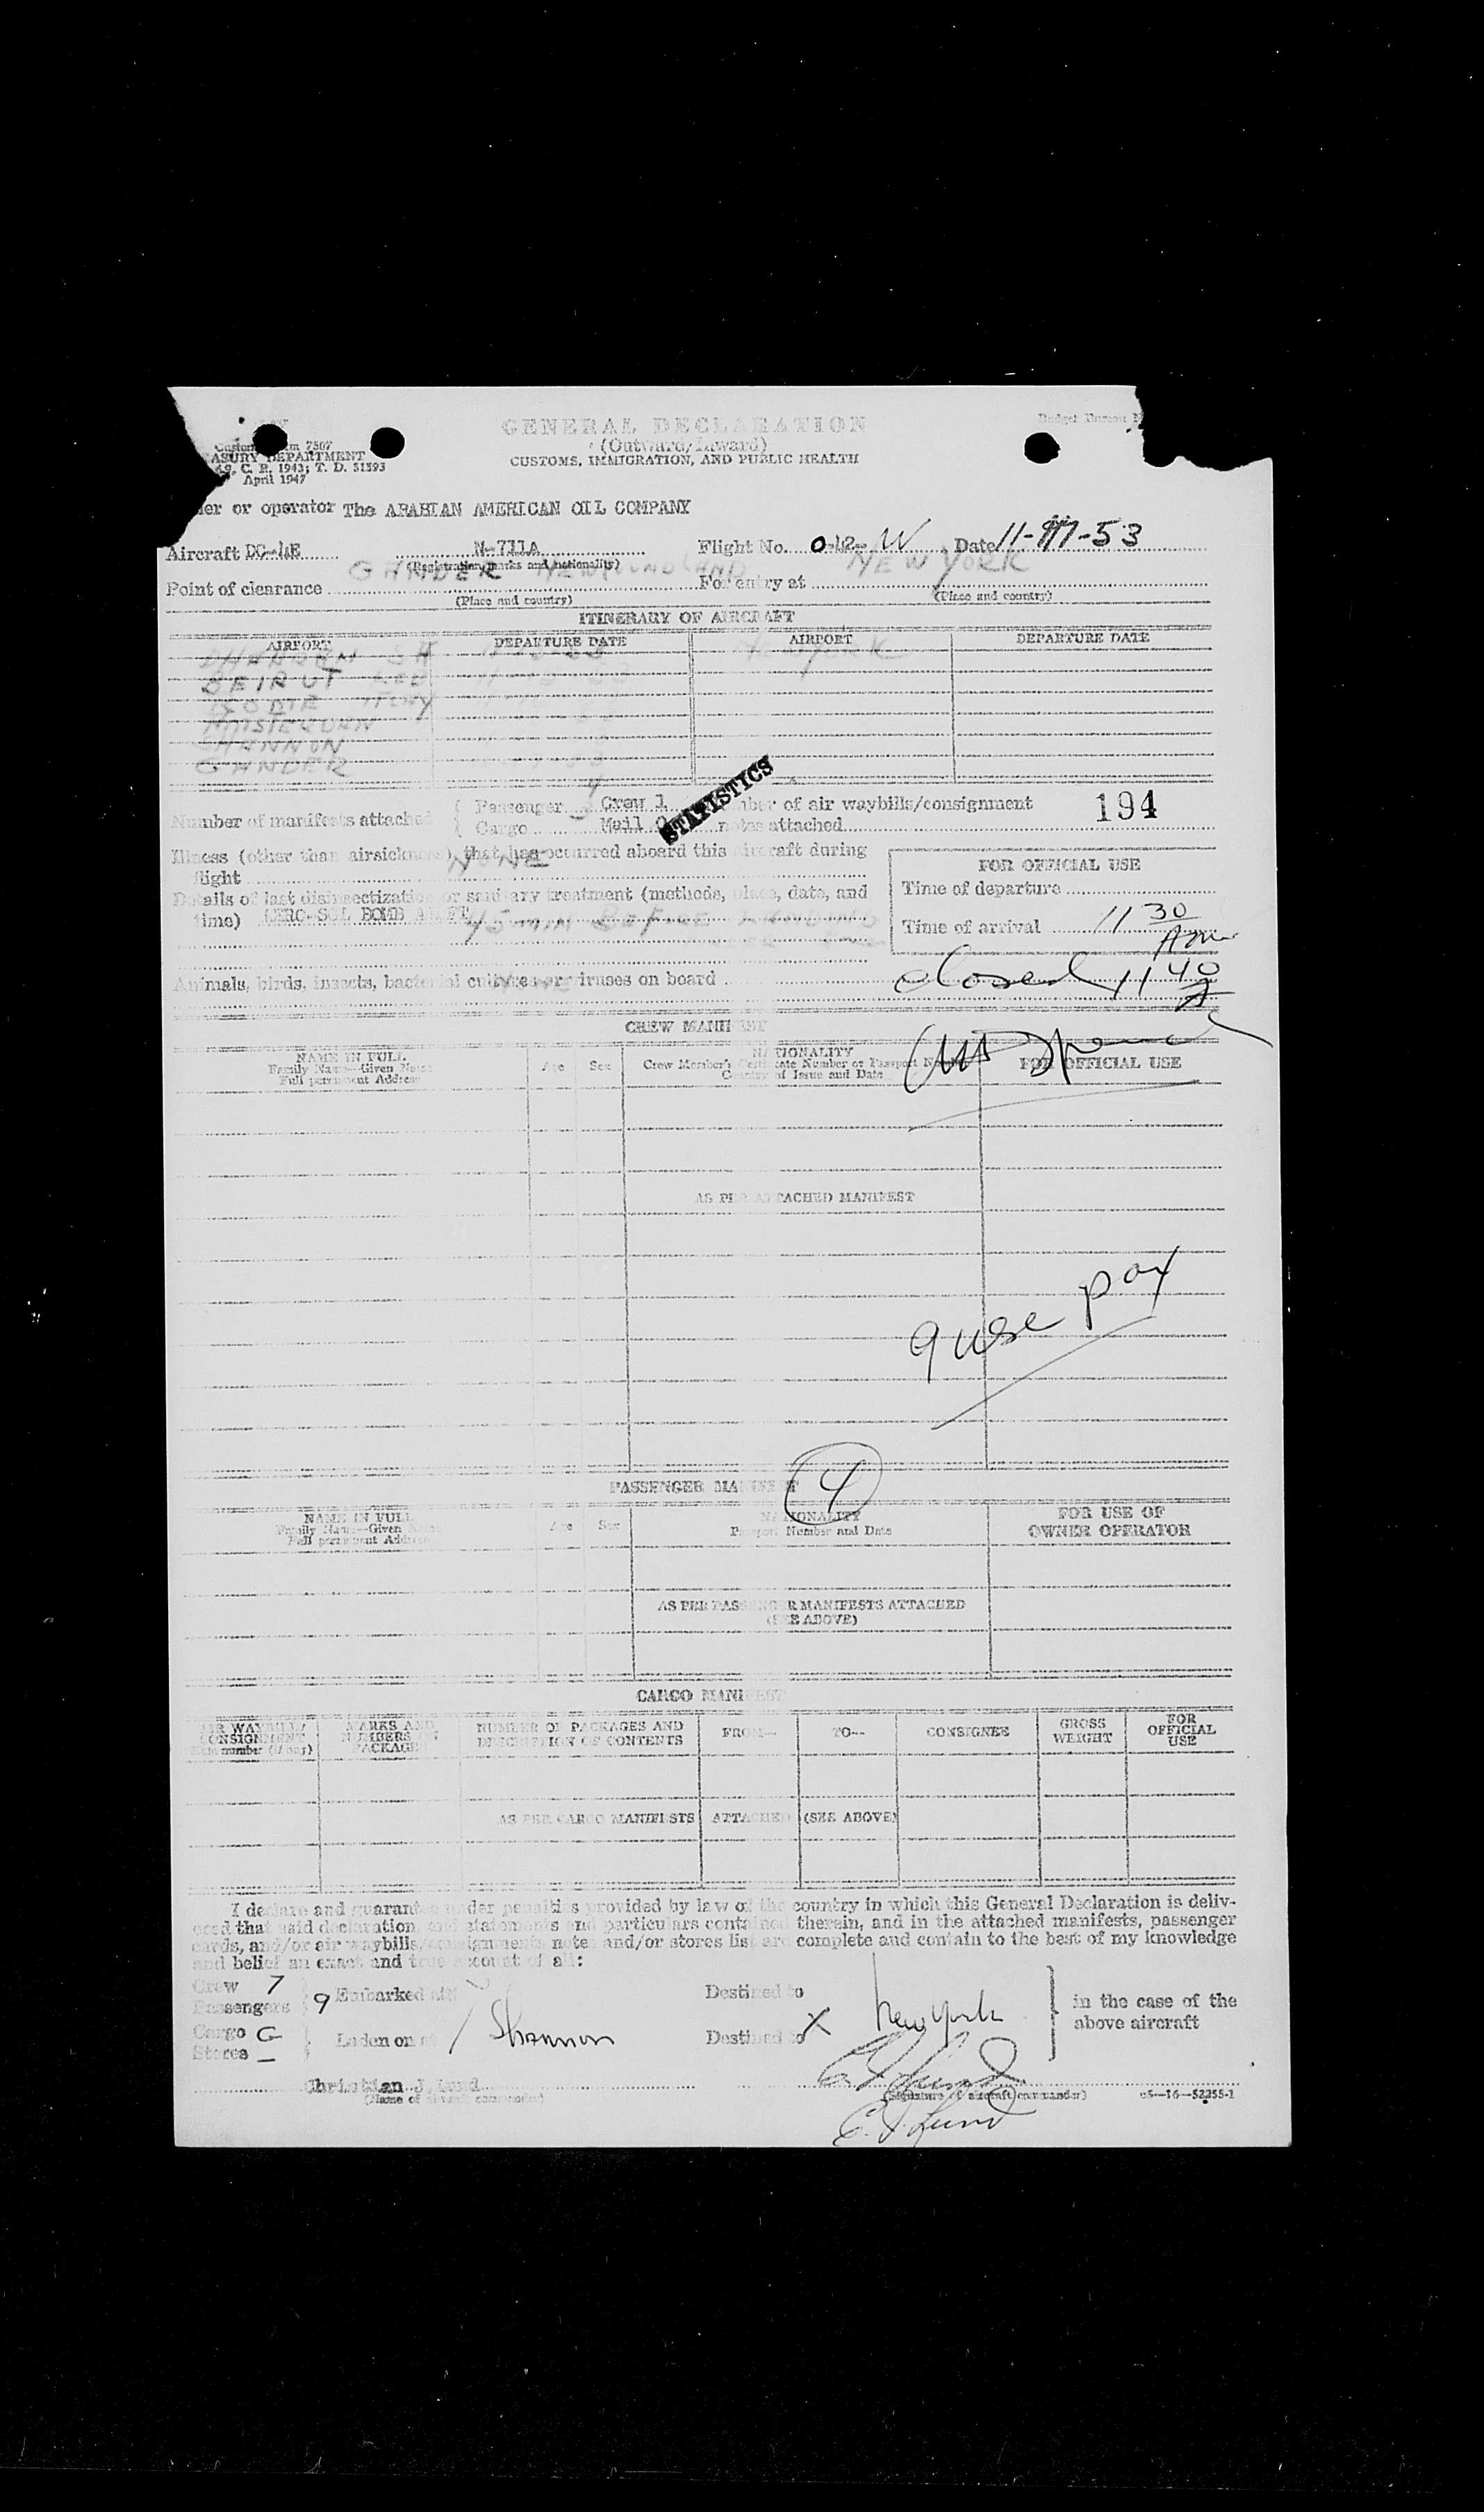 GENERAL DECLARATION
(Outward/Inward)
CUSTOMS, IMMIGRATION, AND PUBLIC HEALTH
Budget Bureau
7507
ASURY DEPARTMENT
C. R. 1943; T. D. 51393
April 1947
er or operator The ARABIAN AMERICAN OIL COMPANY
Aircraft DC-4E N-711A Flight No. 0-42-W Date 11-
-53
(Registration marks and nationality)
Point of clearance GANDER NEWFOUNDLAND For entry at NEW YORK
(Place and country) (Place and country)
ITINERARY OF AIRCRAFT
AIRPORT DEPARTURE DATE AIRPORT DEPARTURE DATE
DHAHRAN SA NEW YORK
BEIRUT LEB
SHANNON
GANDER
Number of manifests attached { Passenger Crew 1 Number of air waybills/consignment 194
Cargo Mail 0 notes attached
STATISTICS
Illness (other than airsickness) that has occurred aboard this aircraft during
flight NONE
Details of last disinsectization or sanitary treatment (methods, place, date, and
time) AERO-SOL BOMB 45 MIN BEFORE LANDING
FOR OFFICIAL USE
Time of departure
Time of arrival 11 30
AM
Animals, birds, insects, bacterial cultures or viruses on board
closed 11 40
A
CREW MANIFEST
NAME IN FULL
Family Name--Given Name
Full permanent Address
Age Sex
NATIONALITY
Crew Member's Certificate Number or Passport Number
Country of Issue and Date
FOR OFFICIAL USE
AS PER ATTACHED MANIFEST
9 use pax
PASSENGER MANIFEST
4
NAME IN FULL
Family Name--Given Name
Full permanent Address
Age Sex
NATIONALITY
Passport Number and Date
FOR USE OF
OWNER OPERATOR
AS PER PASSENGER MANIFESTS ATTACHED
(SEE ABOVE)
CARGO MANIFEST
AIR WAYBILL/
CONSIGNMENT
Note number (if any)
MARKS AND
NUMBERS ON
PACKAGES
NUMBER OF PACKAGES AND
DESCRIPTION OF CONTENTS
FROM--
TO--
CONSIGNEE
GROSS
WEIGHT
FOR
OFFICIAL
USE
AS PER CARGO MANIFESTS ATTACHED (SEE ABOVE)
I declare and guarantee under penalties provided by law of the country in which this General Declaration is deliv-
ered that said declaration and statements and particulars contained therein, and in the attached manifests, passenger
cards, and/or air waybills/consignments notes and/or stores list are complete and contain to the best of my knowledge
and belief an exact and true account of all:
Crew 7
Passengers 9 Embarked at Destined to
Cargo G Laden on at Shannon Destined to X New York
Stores —
} in the case of the
above aircraft
Christian J. Lund
(Name of aircraft commander) (Signature of aircraft commander) c5--16--52255-1
C. J. Lund
C. J. Lund